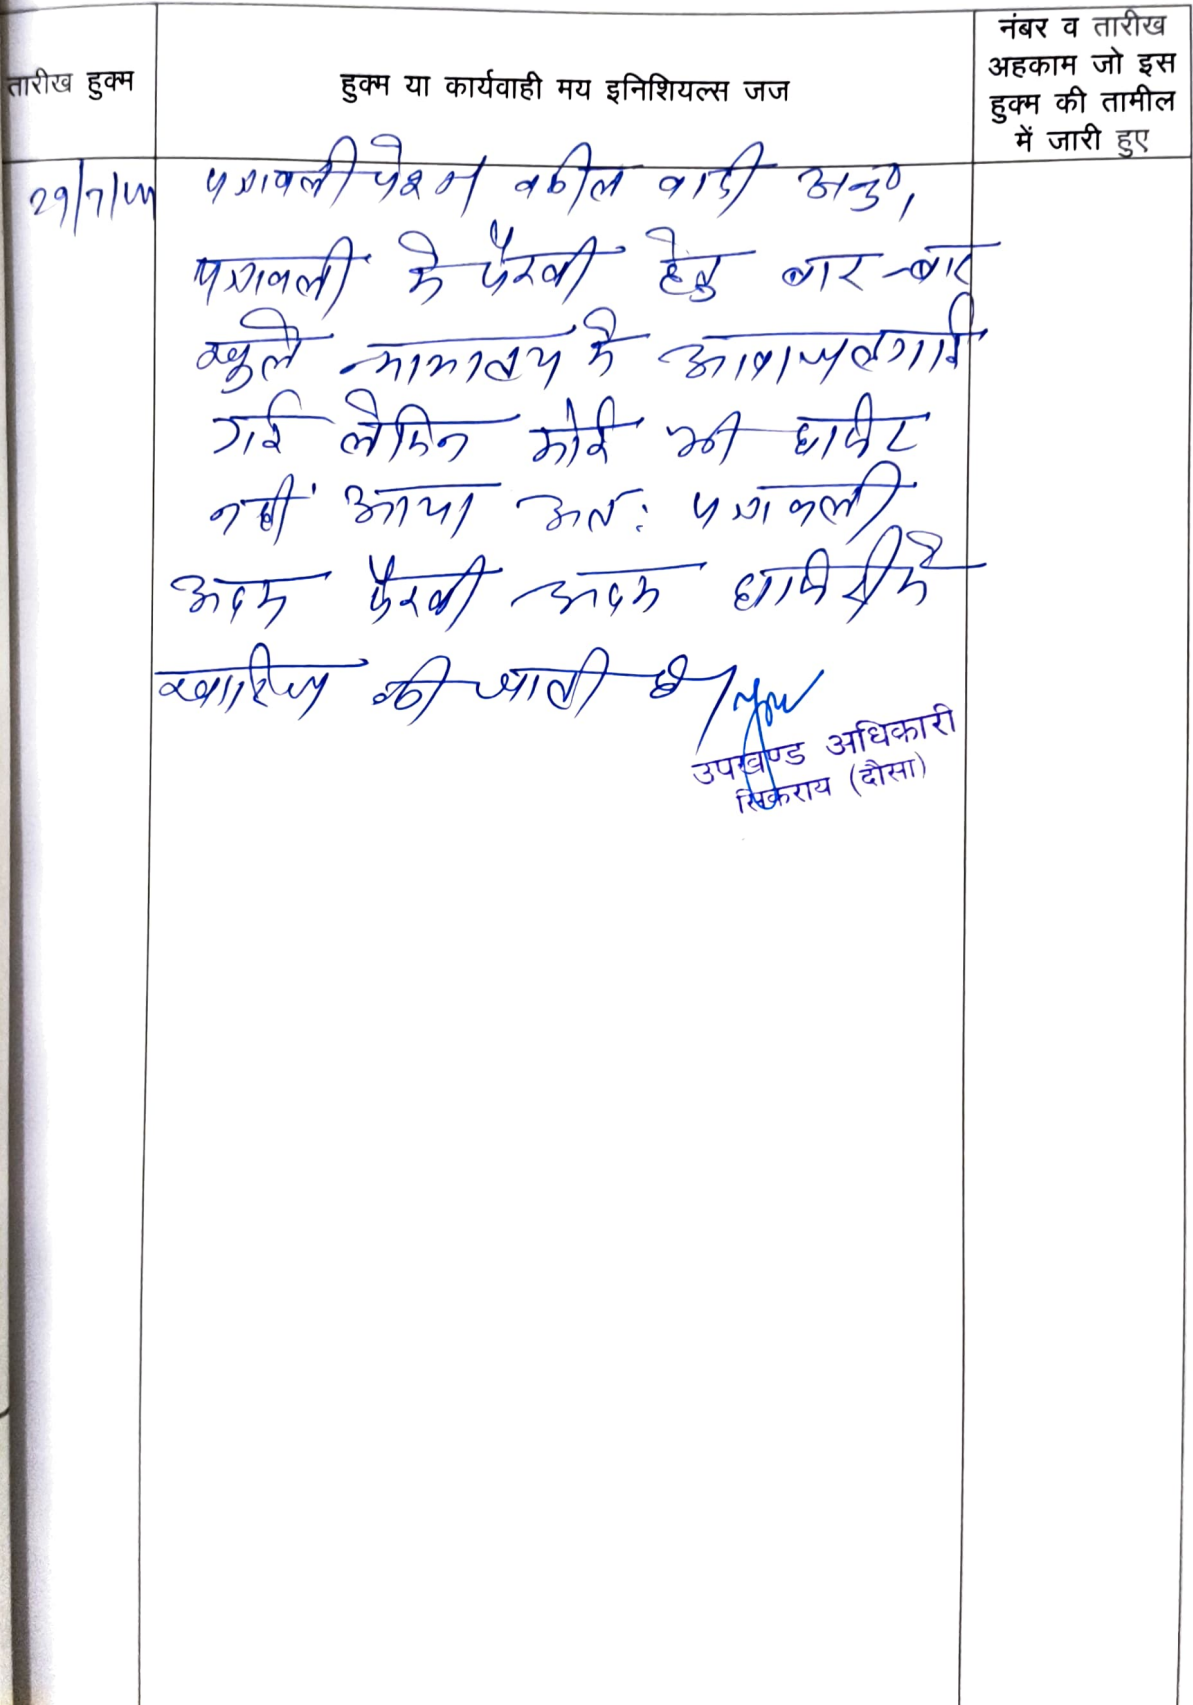 तारीख हुक्म
हुक्म या कार्यवाही मय इनिशियल्स जज
नंबर व तारीख
अहकाम जो इस
हुक्म की तामील
में जारी हुए
29/7/
पत्रावली पेश। वकील वादी अनु०,
पत्रावली मे पैरवी हेतु बार-बार
खुले न्यायालय मे आवाज लगाई
गई लेकिन कोई भी हाजिर
नहीं आया अत: पत्रावली
अदम पैरवी अदम हाजिरी मे
खारिज की जाती है।
उपखण्ड अधिकारी
सिकराय (दौसा)